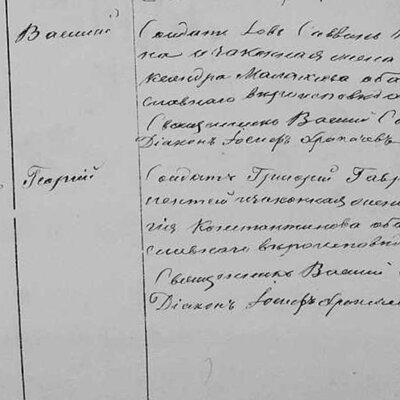 Василій
Солдатъ Іовъ Саввинъ
на и законная жена
ксандра Малахіева оба
славнаго вѣроисповѣд
Священникъ Василій
Діаконъ Іосифъ
Георгій
Солдатъ Григорій Гавр
законная жена
гія Константинова оба
славнаго вѣроисповѣд
Священникъ Василій
Діаконъ Іосифъ